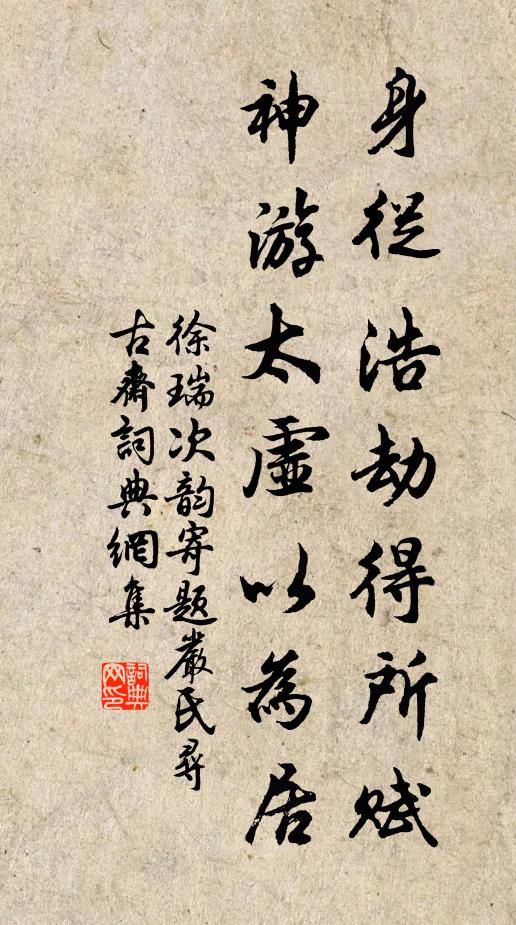 身從浩劫得所賦
神游太虛以為居
徐瑞次韵寄題嚴氏尋
古齋詞典網集
詞典
网印